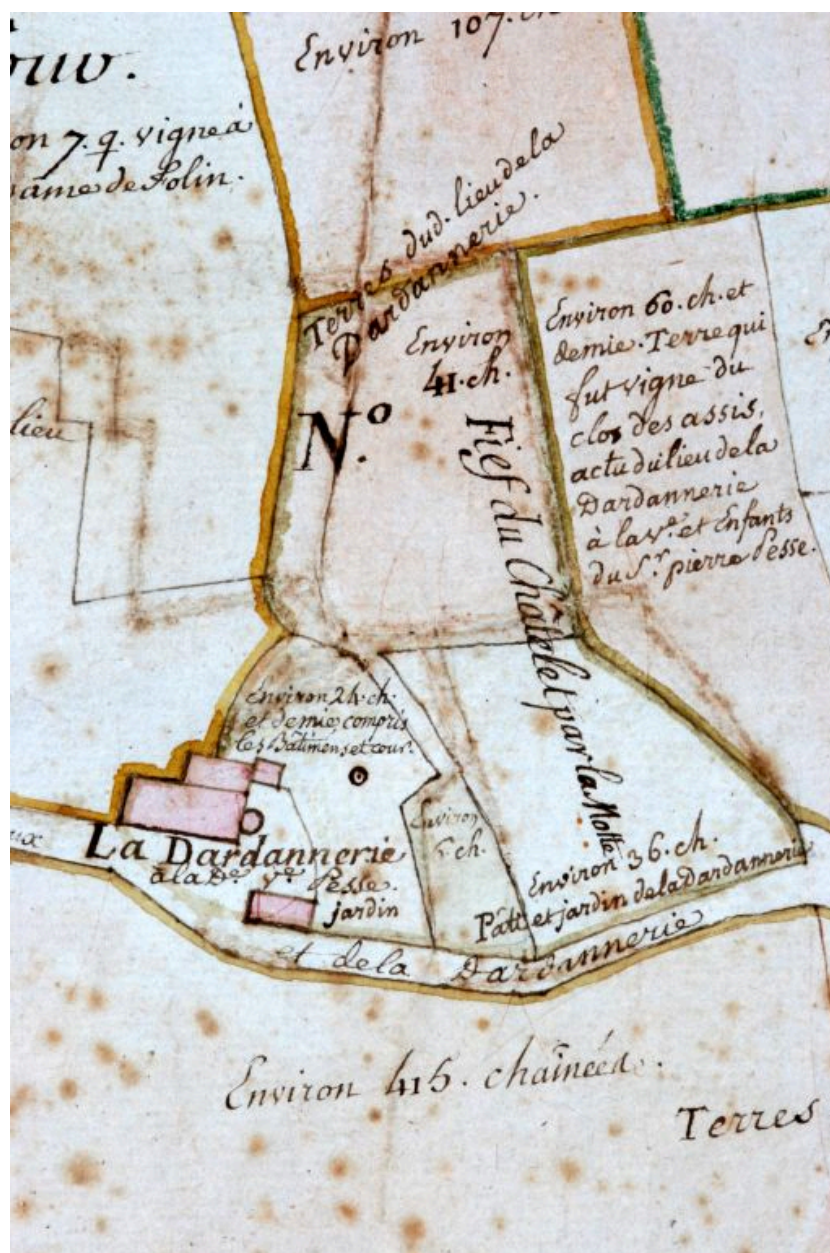 Environ 107. ch
on 7. q. vigne à
Dame de Folin.
Terres dud. lieu de la
Dardannerie.
Environ
41. ch.
N.o
lieu
Fief du Châtelet par la Motte
Environ 60. ch. et
demie. Terre qui
fut vigne du
clos des assis,
actu du lieu de la
Dardannerie
à la ve. et Enfants
du Sr. pierre Pesse.
Environ 24. ch.
et demie compris
les Bâtimens et cour.
Environ
6. ch.
La Dardannerie
a la De. ve. Pesse.
jardin
Environ 36. ch.
Pâtis et jardin de la Dardannerie
et de la Dardannerie
Environ 415. chaînées.
Terres